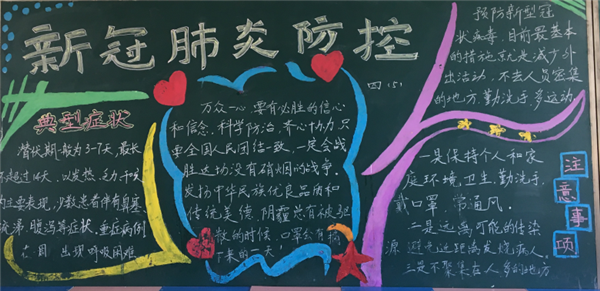 新冠肺炎防控
四（5）
典型症状
潜伏期一般为3-7天，最长
不超过14天，以发热、乏力、干咳
为主要表现，少数患者伴有鼻塞、
流涕、腹泻等症状，重症病例
在 周 出现呼吸困难
万众一心，要有必胜的信心
和信念，科学防治，齐心协力，只
要全国人民团结一致，一定会战
胜这场没有硝烟的战争。
发扬中华民族优良品质和
传统美德，阴霾总有被驱
散的时候，口罩终有摘
下来的一天！
预防新型冠
状病毒，目前最基本
的措施，就是减少外
出活动，不去人员密集
的地方，勤洗手，多运动
一是保持个人和家
庭环境卫生，勤洗手，
戴口罩，常通风。
二是远离可能的传染
源，避免近距离发烧病人。
三是不聚集在人多的地方
注意事项